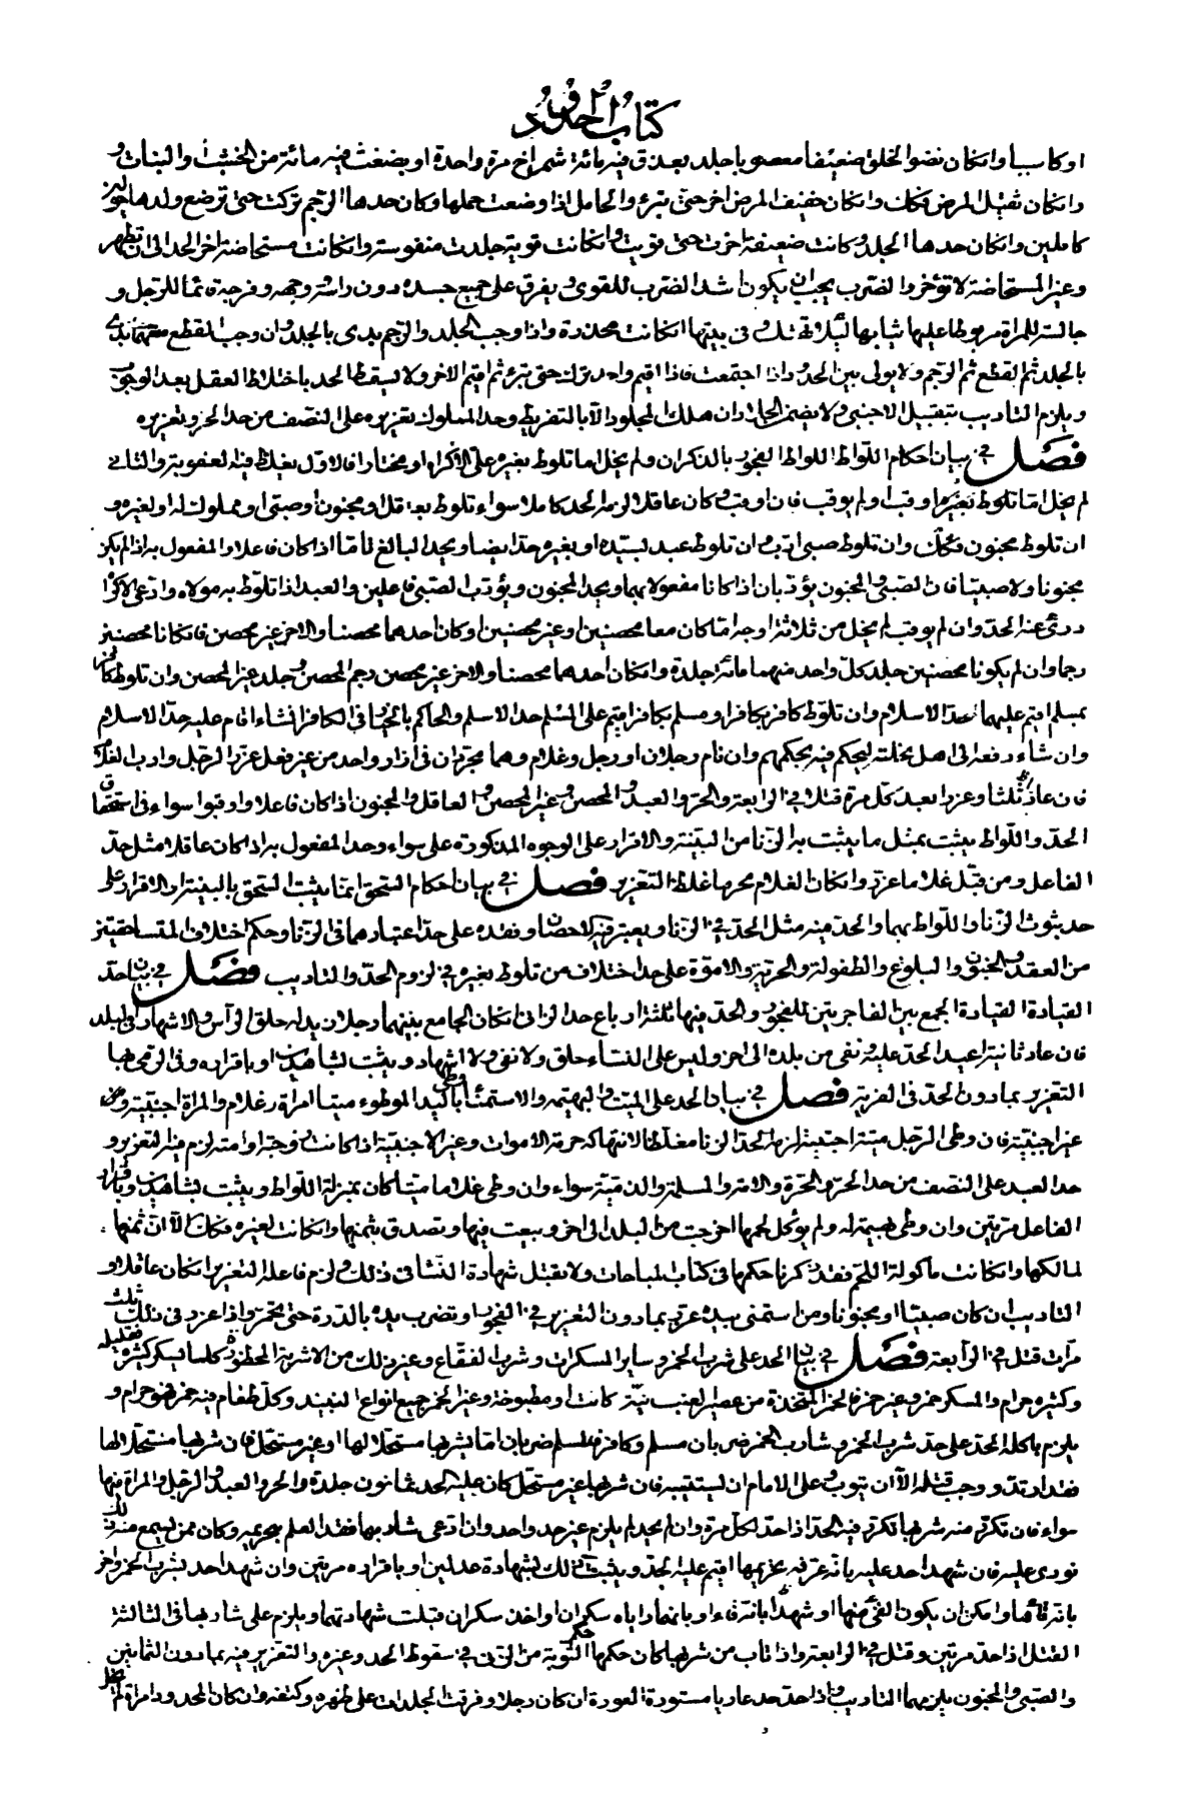 كتاب الحدود
او كاسيا وان كان نضو الخلق ضعيفا معصوبا جلد بعذق فيه مائة شمراخ مرة واحدة او بضغث فيه مائة من الخشب والنبات و
وان كان ثقيل المرض فكذلك وان كان خفيف المرض اخر حتى تبرء والحامل اذا وضعت حملها وكان حدها الرجم تركت حتى ترضع ولدها حولين
كاملين وان كان حدها الجلد وكانت ضعيفة اخرت حتى قويت وان كانت قوية جلدت منفوسة وان كانت مستحاضة اخر الحد الى ان تطهر
وغير المستحاضة لا تؤخر والضرب يجب ان يكون اشد الضرب للقوى ويفرق على جميع جسده دون راسه ووجهه وفرجه قائما للرجل و
جالسة للمراة مربوطا عليها ثيابها لئلا تهتك وفى بيتها ان كانت مخدرة واذا وجب الجلد والرجم بدى بالجلد وان وجب القطع معهما بدى
بالجلد ثم القطع ثم الرجم ولا يوالى بين الحدود اذا اجتمعت فاذا اقيم واحد ترك حتى تبرء ثم اقيم الاخر ولا يسقط الحد باختلاط العقل بعد الوجوب
ويلزم التاديب بتقبيل الاجنبى ولا يضمن الجلاد ان هلك المجلود الا بالتفريط وحد المملوك وتعزيره على النصف من حد الحر وتعزيره
فصل في بيان احكام اللواط اللواط الفجور بالذكران ولم يخل اما تلوط بغيره على الاكراه او مختارا فالاول يغلظ فيه العقوبة والثانى
لم يخل اما تلوط بغيره واوقب او لم يوقب فان اوقب وكان عاقلا لزمه الحد كاملا سواء تلوط بعاقل او مجنون او صبى او مملوك له او لغيره و
ان تلوط مجنون فكذلك وان تلوط صبى ادب وان تلوط عبد بسيده او بغيره حد ايضا ويحد البالغ تاما اذا كان فاعلا والمفعول به اذا لم يكن
مجنونا ولا صبيا فان الصبى والمجنون يؤدبان اذا كانا مفعولا بهما ويحد المجنون ويؤدب الصبى فاعلين والعبد اذا تلوط به مولاه وادعى الاكراه
درئ عنه الحد وان لم يوقب لم يخل من ثلاثة اوجه اما كان معا محصنين او غير محصنين او كان احدهما محصنا والاخر غير محصن فان كانا محصنين
رجما وان لم يكونا محصنين جلد كل واحد منهما مائة جلدة وان كان احدهما محصنا والاخر غير محصن رجم المحصن وجلد غير المحصن وان تلوط كافر
بمسلم اقيم عليهما حد الاسلام وان تلوط كافر بكافر او مسلم بكافر اقيم على المسلم حد الاسلام والحاكم بالخيار فى الكافر ان شاء اقام عليه حد الاسلام
وان شاء دفعه الى اهل نحلته ليحكم فيه بحكمهم وان نام رجلان او رجل وغلام وهما مجردان فى ازار واحد من غير فعل عزر الرجل وادب الغلام
فان عاد ثلثا وعزرا بعد كل مرة قتلا في الرابعة والحر والعبد والمحصن وغير المحصن والعاقل والمجنون اذا كان فاعلا واوقبوا سواء فى استحقاق
الحد واللواط يثبت بمثل ما يثبت به الزنا من البينة والاقرار على الوجوه المذكورة على سواء وحد المفعول به اذا كان عاقلا مثل حد
الفاعل ومن قبل غلاما عزر وان كان الغلام محرما غلظ التعزير فصل في بيان احكام السحق انما يثبت السحق بالبينة او الاقرار على
حد ثبوت الزنا واللواط بهما والحد فيه مثل الحد في الزنا ويعتبر فيه الاحصان وفقده على حد اعتبارهما فى الزنا وحكم اختلاف المتساحقتين
من العقل والجنون والبلوغ والطفولة والحرية والاموة على حد اختلاف من تلوط بغيره في لزوم الحد والتاديب فصل في بيان حد
القيادة القيادة الجمع بين الفاجرين للفجور والحد فيها ثلثة ارباع حد الزانى ان كان الجامع بينهما رجلان بدله حلق الرأس والاشهار فى البلد
فان عاد ثانية اعيد الحد عليه ونفى من بلده الى اخر وليس على النساء حلق ولا نفى ولا اشهاد ويثبت بشاهدين او باقراره وفى الرمى بها
التعزير بما دون الحد فى الفرية فصل في بيان الحد على الميت ووطى البهيمة والاستمناء باليد الموطوء ميتا امراة وغلام والمراة اجنبية ومن
غير اجنبية فان وطى الرجل ميتة اجنبية لزمه الحد الزنا مغلظا لانتهاكه حرمة الاموات وغير الاجنبية اذا كانت زوجة او امته لزم فيه التعزير و
حد العبد على النصف من حد الحر والحرة والامة والمسلمة والذمية سواء وان وطى غلاما ميتا كان بمنزلة اللواط ويثبت بشاهدين وباقرار
الفاعل مرتين وان وطى بهيمة له ولم يؤكل لحمها اخرجت من البلد الى اخر وبيعت فيها وتصدق بثمنها وان كانت لغيره فكذلك الا ان ثمنها
لمالكها وان كانت ماكولة اللحم فقد ذكرنا حكمها فى كتاب المباحات ولا تقبل شهادة النساء فى ذلك ولزم فاعله التعزير ان كان عاقلا و
التاديب ان كان صبيا او مجنونا ومن استمنى بيده عزر بما دون التعزير في الفجور وتضرب يده بالدرة حتى تحمر واذا عزر فى ذلك ثلث
مرات قتل في الرابعة فصل في بيان الحد على شرب الخمر وساير المسكرات وشرب الفقاع وغير ذلك من الاشربة المحظورة كلما يسكر كثيره فقليله
وكثيره حرام والمسكر خمر وغير خمر فالخمر المتخذة من عصير العنب نية كانت او مطبوخة وغير الخمر جميع انواع النبيذ وكل طعام فيه خمر فهو حرام و
يلزم باكله الحد على حد شرب الخمر وشارب الخمر ضربان مسلم وكافر فالمسلم ضربان اما يشربها مستحلا لها او غير مستحل فان شربها مستحلا لها
فقد ارتد ووجب قتله الا ان يتوب وعلى الامام ان يستتيبه فان شربها غير مستحل كان عليه الحد ثمانون جلدة والحر والعبد والرجل والمراة فيها
سواء فان تكرر منه شربها تكرر فيه الحد اذا حد لكل مرة وان لم يحد لم يلزم غير حد واحد وان ادعى شاربها فقد العلم بتحريمه وكان ممن يسمع منه ذلك
نودى عليه فان شهد احد عليه بانه عرفه تحريمها اقيم عليه الحد ويثبت ذلك بشهادة عدلين او باقراره مرتين وان شهد احد بشرب الخمر واخر
بانه قائها وامكن ان يكون القئ منها او شهدا بانه قاء او بانهما راياه سكران او اخذ سكران قبلت شهادتهما ويلزم على شاربها فى الثالثة
القتل اذا حد مرتين وقتل في الرابعة واذا تاب من شربها كان حكمها حكم التوبة من الزنى في سقوط الحد وغيره والتعزير فيه بما دون الثمانين
والصبى والمجنون يلزمهما التاديب واذا حد حد عاريا مستورة العورة ان كان رجلا وفرقت الجلدات على ظهره وكتفه وان كان المحدود امراة لم